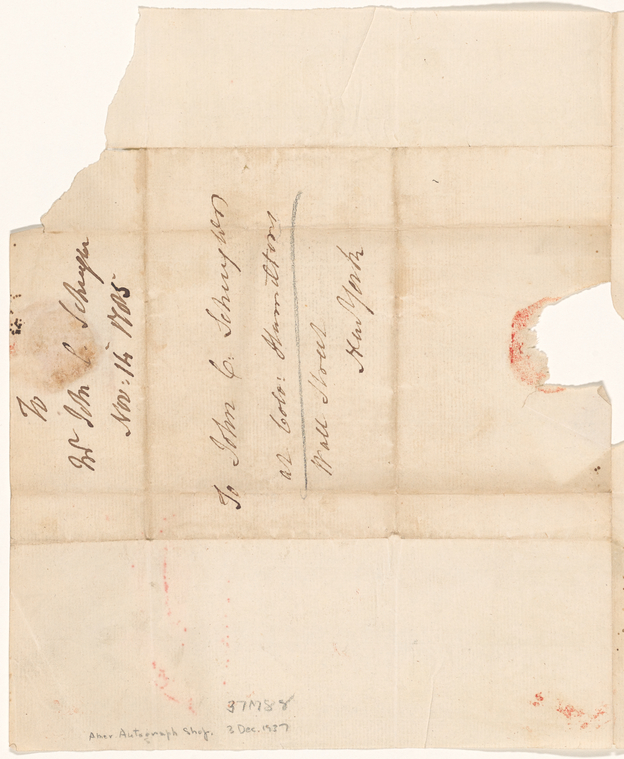 To
Mr John C Schuyler
Nov: 14 1785
To John C. Schuyler
at Colo: Hamiltons
Wall Street
New York
37M88
Amer Autograph Shop. 3 Dec. 1937